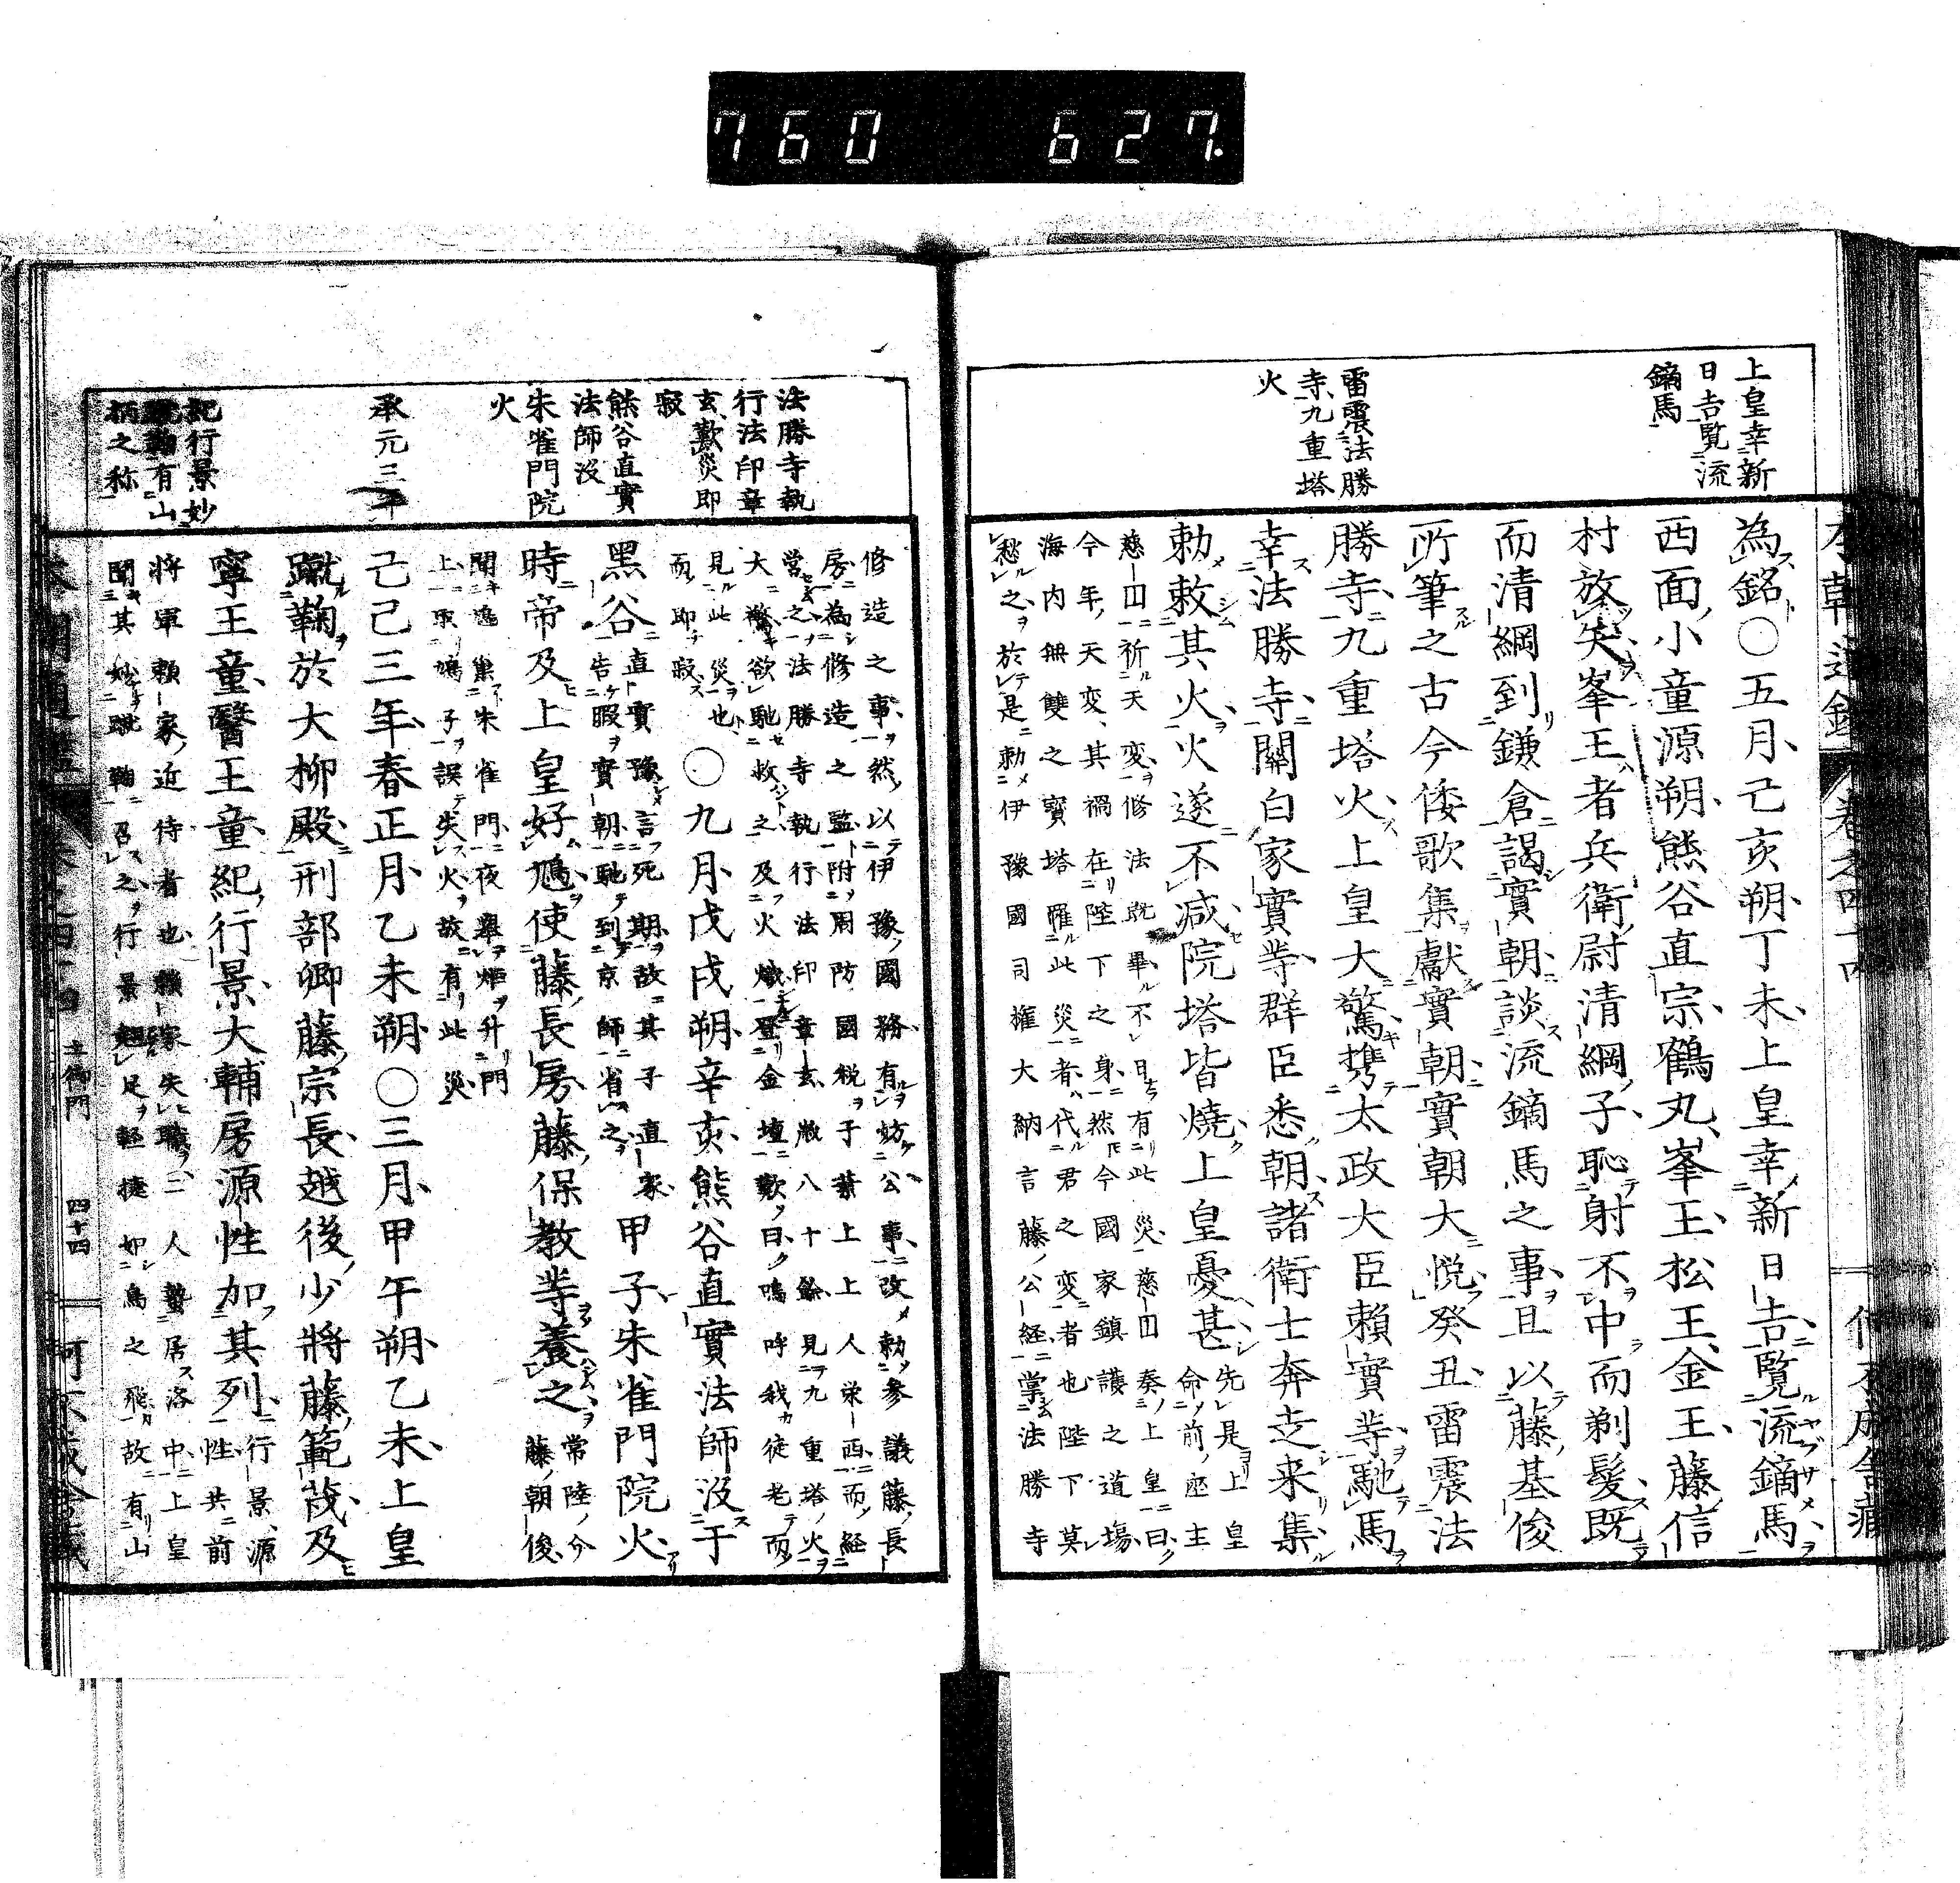 760 627.
上皇幸新
日吉覧流
鏑馬
雷震法勝
寺九重塔
火
為銘○五月己亥朔丁未上皇幸新日吉覧流鏑馬
西面小童源朔熊谷直宗鶴丸峯王松王金王藤信
村放矢峯王者兵衛尉清綱子恥射不中而剃髪既
而清綱到鎌倉謁實朝談流鏑馬之事且以藤基俊
所筆之古今倭歌集獻實朝實朝大悦癸丑雷震法
勝寺九重塔火上皇大驚携太政大臣頼實等馳馬
幸法勝寺關白家實等群臣悉朝諸衛士奔走来集
勅救其火火遂不滅院塔皆燒上皇憂甚
先是上皇
命前座主
慈円祈天変修法既畢不日有此災慈円奏上皇曰
今年天変其禍在陛下之身然今國家鎮護之道場
海内無雙之寶塔罹此災者代君之変者也陛下莫
愁之於是勅伊豫國司権大納言藤公経掌法勝寺
法勝寺執
行法印章
玄歎災即
寂
熊谷直實
法師没
朱雀門院
火
承元三年
紀行景妙
蹴鞠有山
柄之称
修造之事然以伊豫國務有妨公事改勅参議藤長
房為修造之監附周防國税于葉上上人栄西而経
営之法勝寺執行法印章玄歳八十餘見九重塔火
大驚欲馳救之及火熾登金壇歎曰嗚呼我徒老而
見此災也
而即寂
○九月戊戌朔辛亥熊谷直實法師没于
黒谷
直實豫言死期故其子直家
告暇實朝馳到京師省之
甲子朱雀門院火
時帝及上皇好鳩使藤長房藤保教等養之
常陸今
藤朝俊
聞鳩巣朱雀門夜舉炬升門
上取鳩子誤失火故有此災
己巳三年春正月乙未朔○三月甲午朔乙未上皇
蹴鞠於大柳殿刑部卿藤宗長越後少將藤範茂及
寧王童醫王童紀行景大輔房源性加其列
行景源
性共前
將軍頼家近侍者也頼家失職二人蟄居洛中上皇
聞其妙蹴鞠召之行景翹足軽捷如鳥之飛故有山
土御門
四十四